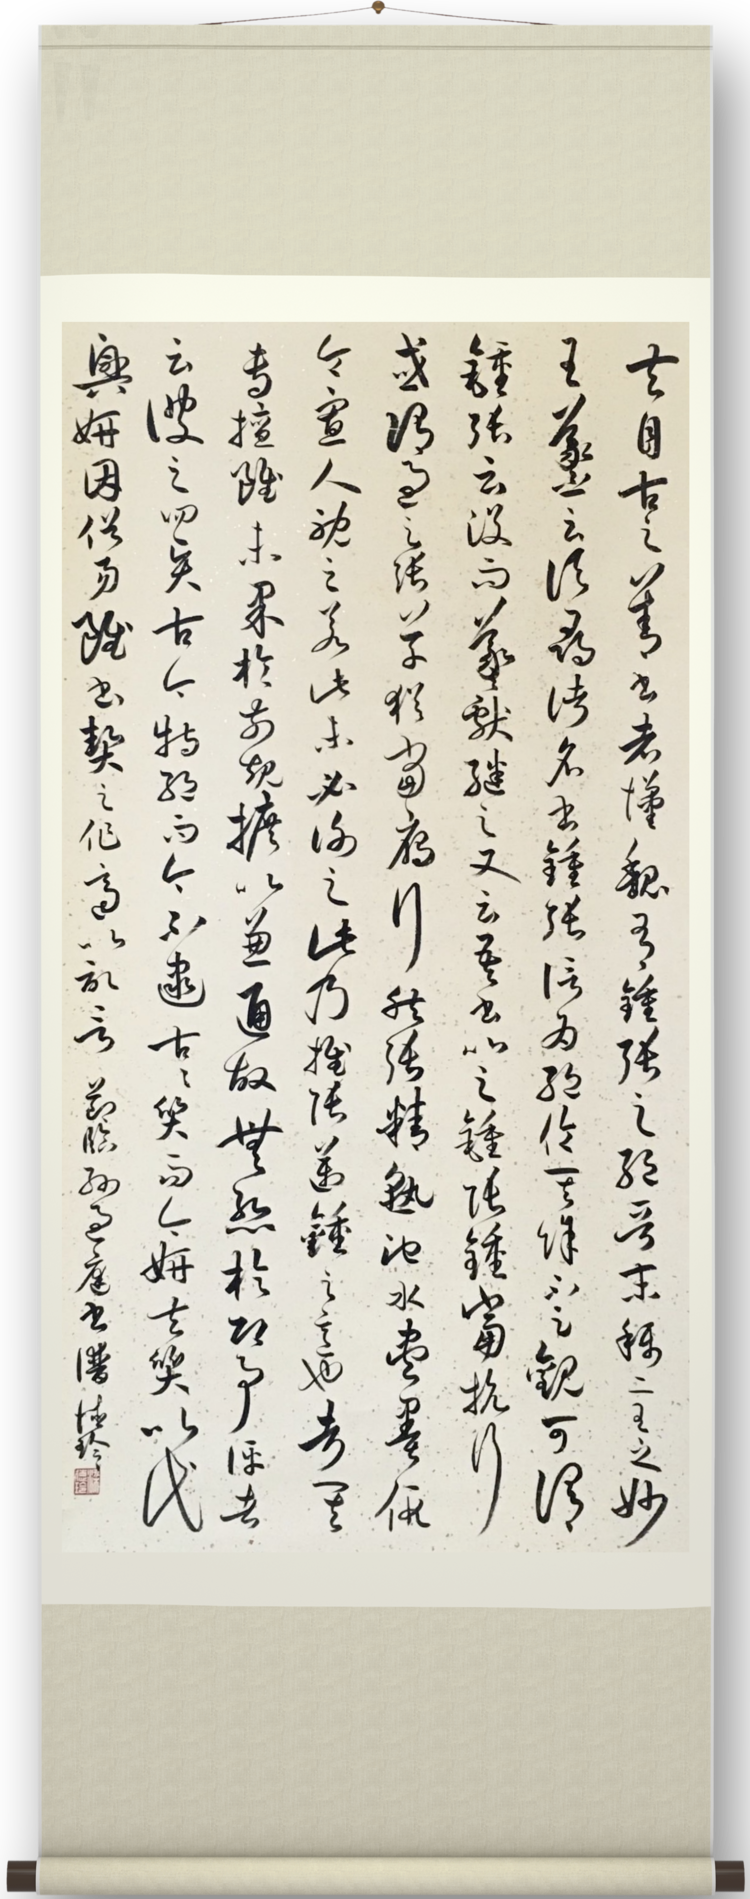 夫自古之善書者漢魏有鍾張之絕晉末稱二王之妙
王羲之云頃尋諸名書鍾張信為絕倫其餘不足觀可謂
鍾張云沒而羲獻繼之又云吾書比之鍾張鍾當抗行
或謂過之張草猶當雁行然張精熟池水盡墨假
令寡人耽之若此未必謝之此乃推張邁鍾之意也考其
專擅雖未果於前規摭以兼通故無慚於即事評者
云彼之四賢古今特絕而今不逮古古質而今妍夫質以代
興妍因俗易雖書契之作適以記言 節臨孫過庭書譜